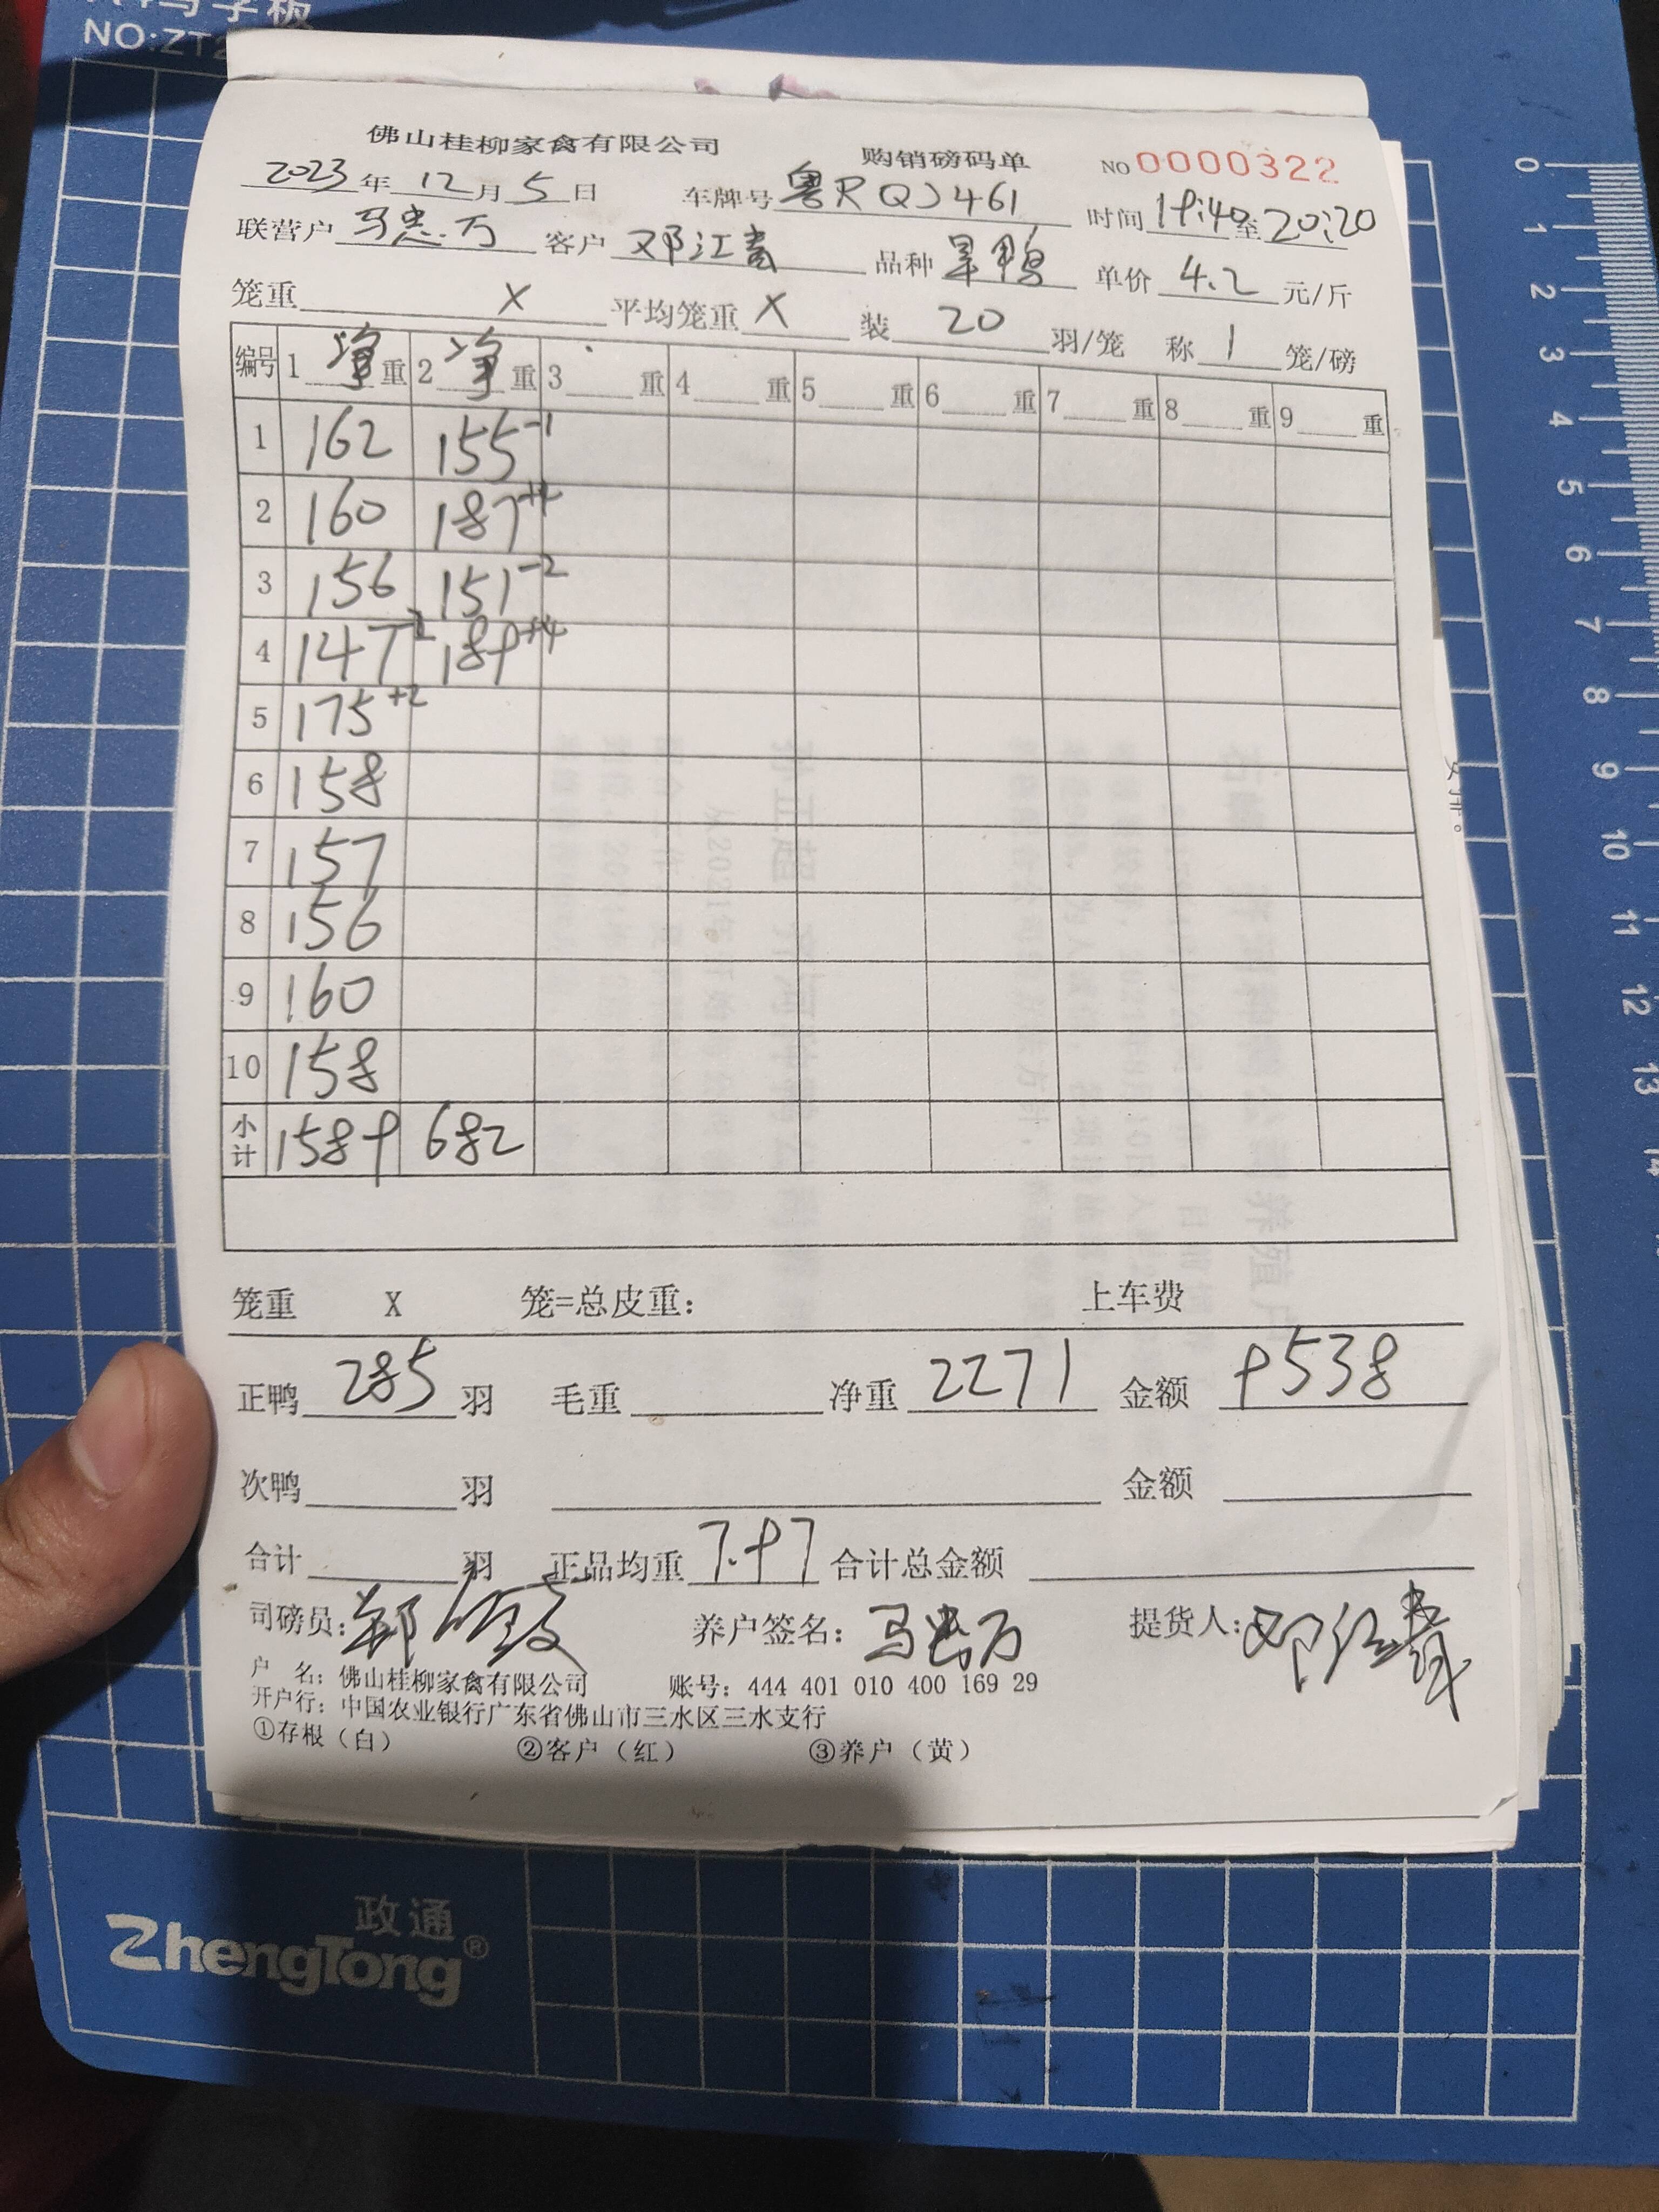 NO:ZT2
佛山桂柳家禽有限公司 购销磅码单 NO 0000322
2023年12月5日 车牌号粤RQJ461 时间19:40至20:20
联营户马忠万 客户邓江 品种旱鸭 单价4.2元/斤
笼重 X 平均笼重X 装20羽/笼 称1笼/磅
编号 1净重 2净重 3重 4重 5重 6重 7重 8重 9重
1 162 155-1
2 160 187+4
3 156 151-2
4 147-2 189+4
5 175+2
6 158
7 157
8 156
9 160
10 158
小计 1589 682
笼重 X 笼=总皮重: 上车费
正鸭285羽 毛重 净重2271 金额9538
次鸭 羽 金额
合计 羽 正品均重7.97 合计总金额
司磅员:郑 养户签名:马忠万 提货人:邓江
户 名:佛山桂柳家禽有限公司 账号:444 401 010 400 169 29
开户行:中国农业银行广东省佛山市三水区三水支行
①存根(白) ②客户(红) ③养户(黄)
政通
ZhengTong®
0
1
2
3
4
5
6
7
8
9
10
11
12
13
14